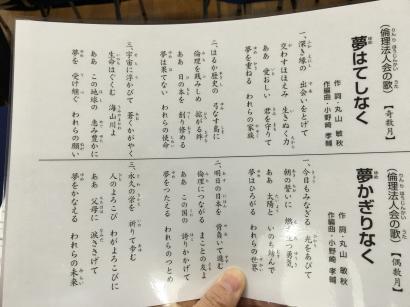 (倫理法人会の歌)
夢はてしなく 【奇数月】
作詞・丸山敏秋
作編曲・小野崎孝輔
一、深き縁の 出会いをとげて
交わすほほえみ 生きぬく力
ああ 愛おしい 君を守りて
夢を重ねる われらの家族
二、はるか歴史の
倫理を残みしめ 拡がる絆
ああ 日の本を 創り修める
夢は果てない われらの使命
三、宇宙に浮かびて 蒼くかがやく
生命はぐくむ 海山川よ
ああ この地球の 恵み豊かに
夢を 受け継ぐ われらの願い
(倫理法人会の歌)
夢かぎりなく 【偶数月】
作詞・丸山敏秋
作編曲・小野崎孝輔
一、今日もみなぎる 光をあびて
朝の誓いに 燃え立つ勇気
ああ 太陽と いのち結んで
夢はひろがる われらの世界
二、明日の日本を 背負いて進む
倫理につながる まことの友よ
ああ この国の 誇りかかげて
夢をつたえる われらのつとめ
三、永久の栄を 祈りて歩む
人のよろこび わがよろこびに
ああ 父母に 涙ささげて
夢をかなえる われらの未来